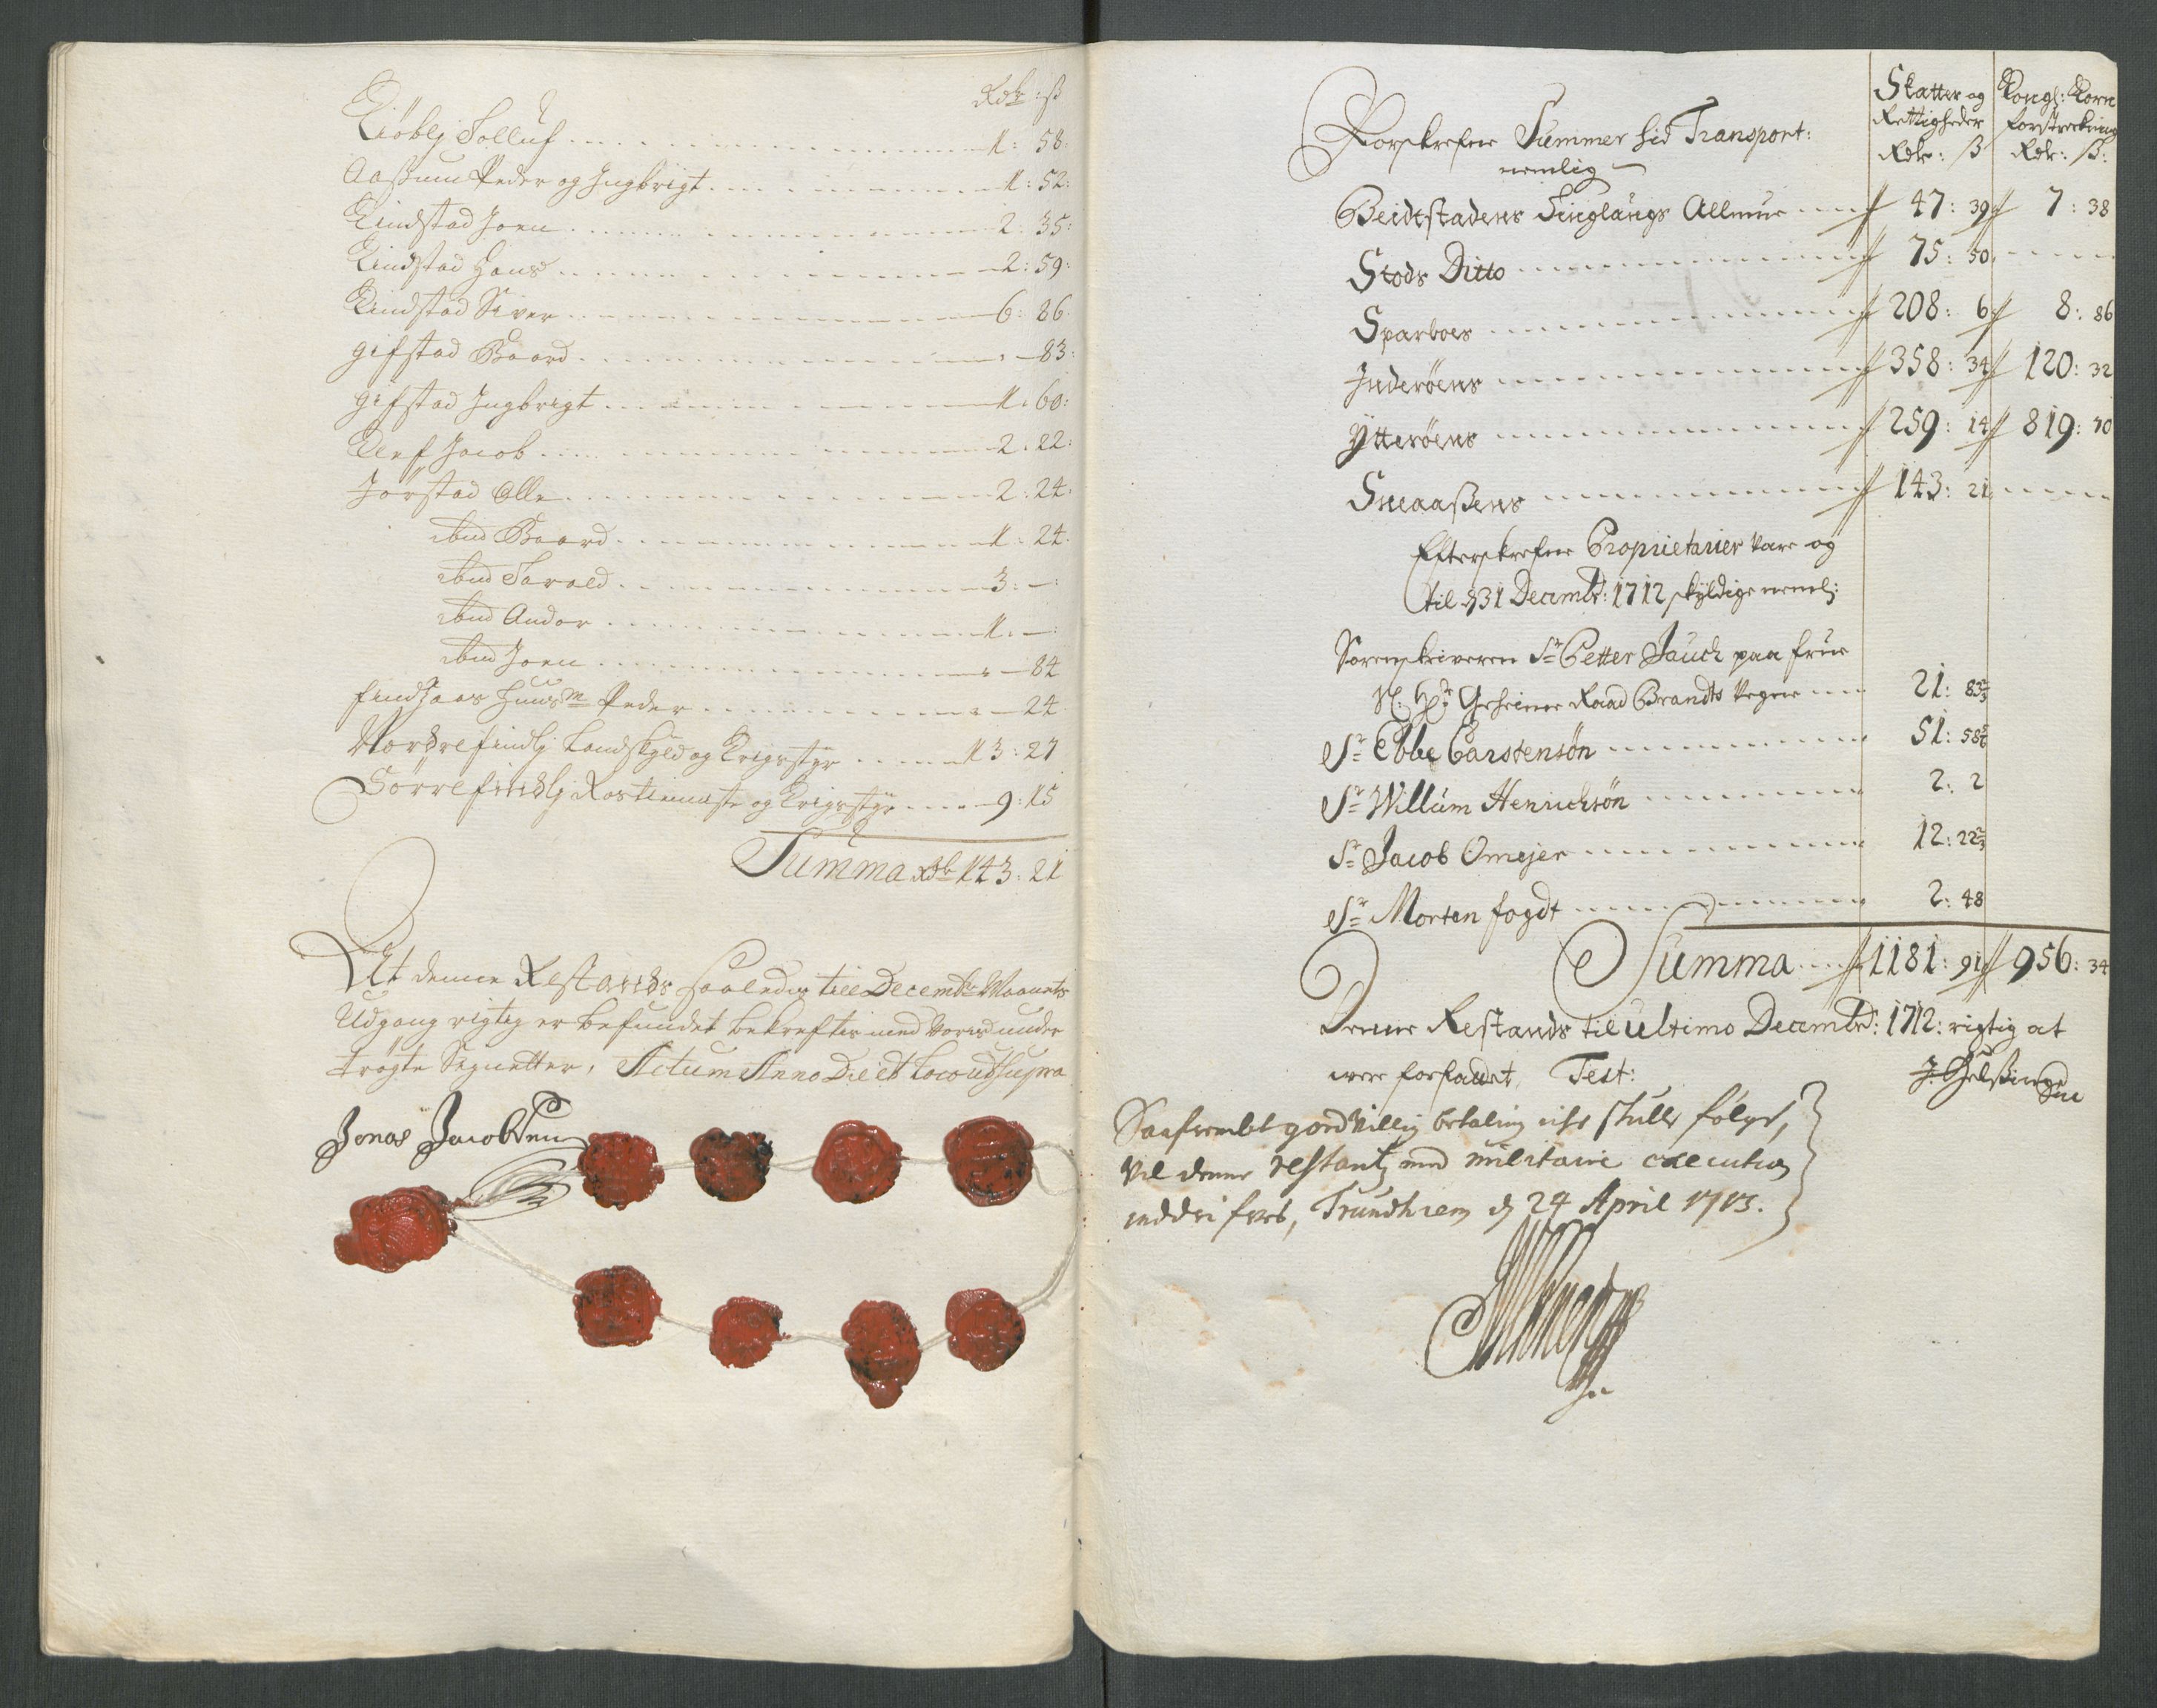 Rdr: ß
Kiöblj Solluf 1: 58:
Aaßum Peder og Ingbrigt 1: 52:
Kindstad Joen 2: 35:
Kindstad Hans 2: 59:
Kindstad Siver 6: 86:
gifstad Baard 83:
gifstad Ingbrigt 1: 60:
Jacob 2: 22:
Jorstad Olle 2: 24:
ibid Baard 1: 24:
ibid Harald 3: –:
ibid Andor 1: –:
ibid Joen – 84
findsaas Huusm Peder – 24
Nordre findlj Landskyld og Krigsstyr 13: 27
Sörre findlj Rostieniste og Krigsstyr 9: 15
Summa Rdr 143: 21
At denne Restands saaledis till Decembr Maanets
Udgang rigtig er befundet bekreftis med voris under
trögte Signetter, Actum Anno Die et Loco ut Supra
Jonas Jacobsen
Skatter og Rettigheder Rdr: ß
Kongl: Korn forstreckning Rdr: ß:
Forskrefne Summer hid Transport:
nemlig
Beidtstadens Tinglaugs Allmue 47: 39 7: 38
Stods Ditto 75: 50
Sparboes 208: 6 8: 86
Inderöens 358: 34 120: 32
Ytteröens 259: 14 819: 70
Sneaaßens 143: 21
Efterskrefne Proprietarier vare og
til d 31 Decembr: 1712 skyldige neml:
Sorenskriveren Sr Petter Jauch paa frue
Geheime Raad Brandts Vegne 21: 83
Sr Ebbe Carstensön 51: 58
Sr Willum Henrichsön 2: 2
Sr Jacob Omejer 12: 22
Sr Morten fogdt 2: 48
Summa 1181: 91 956: 34
Denne Restands til ultimo Decembr: 1712: rigtig at
were forfattet, Test:
Saafremt goedvillig betaling icke skulle følge,
vil denne restantz med militarie execution
inddrifves, Trundhiem d 24 April 1713.